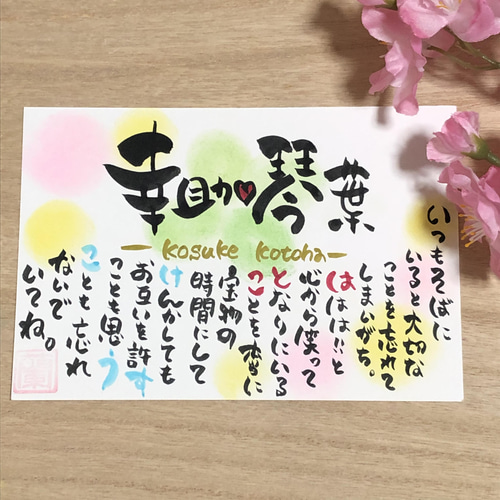 幸助♥琴葉
-Kosuke Kotoha-
いつもそばに
いると大切な
ことを忘れて
しまいがち。
ははは!!と
心から笑って
となりにいる
ことを
宝物の
時間にして
けんかしても
お互いを許す
ことも思う
ことも忘れ
ないで
いてね。